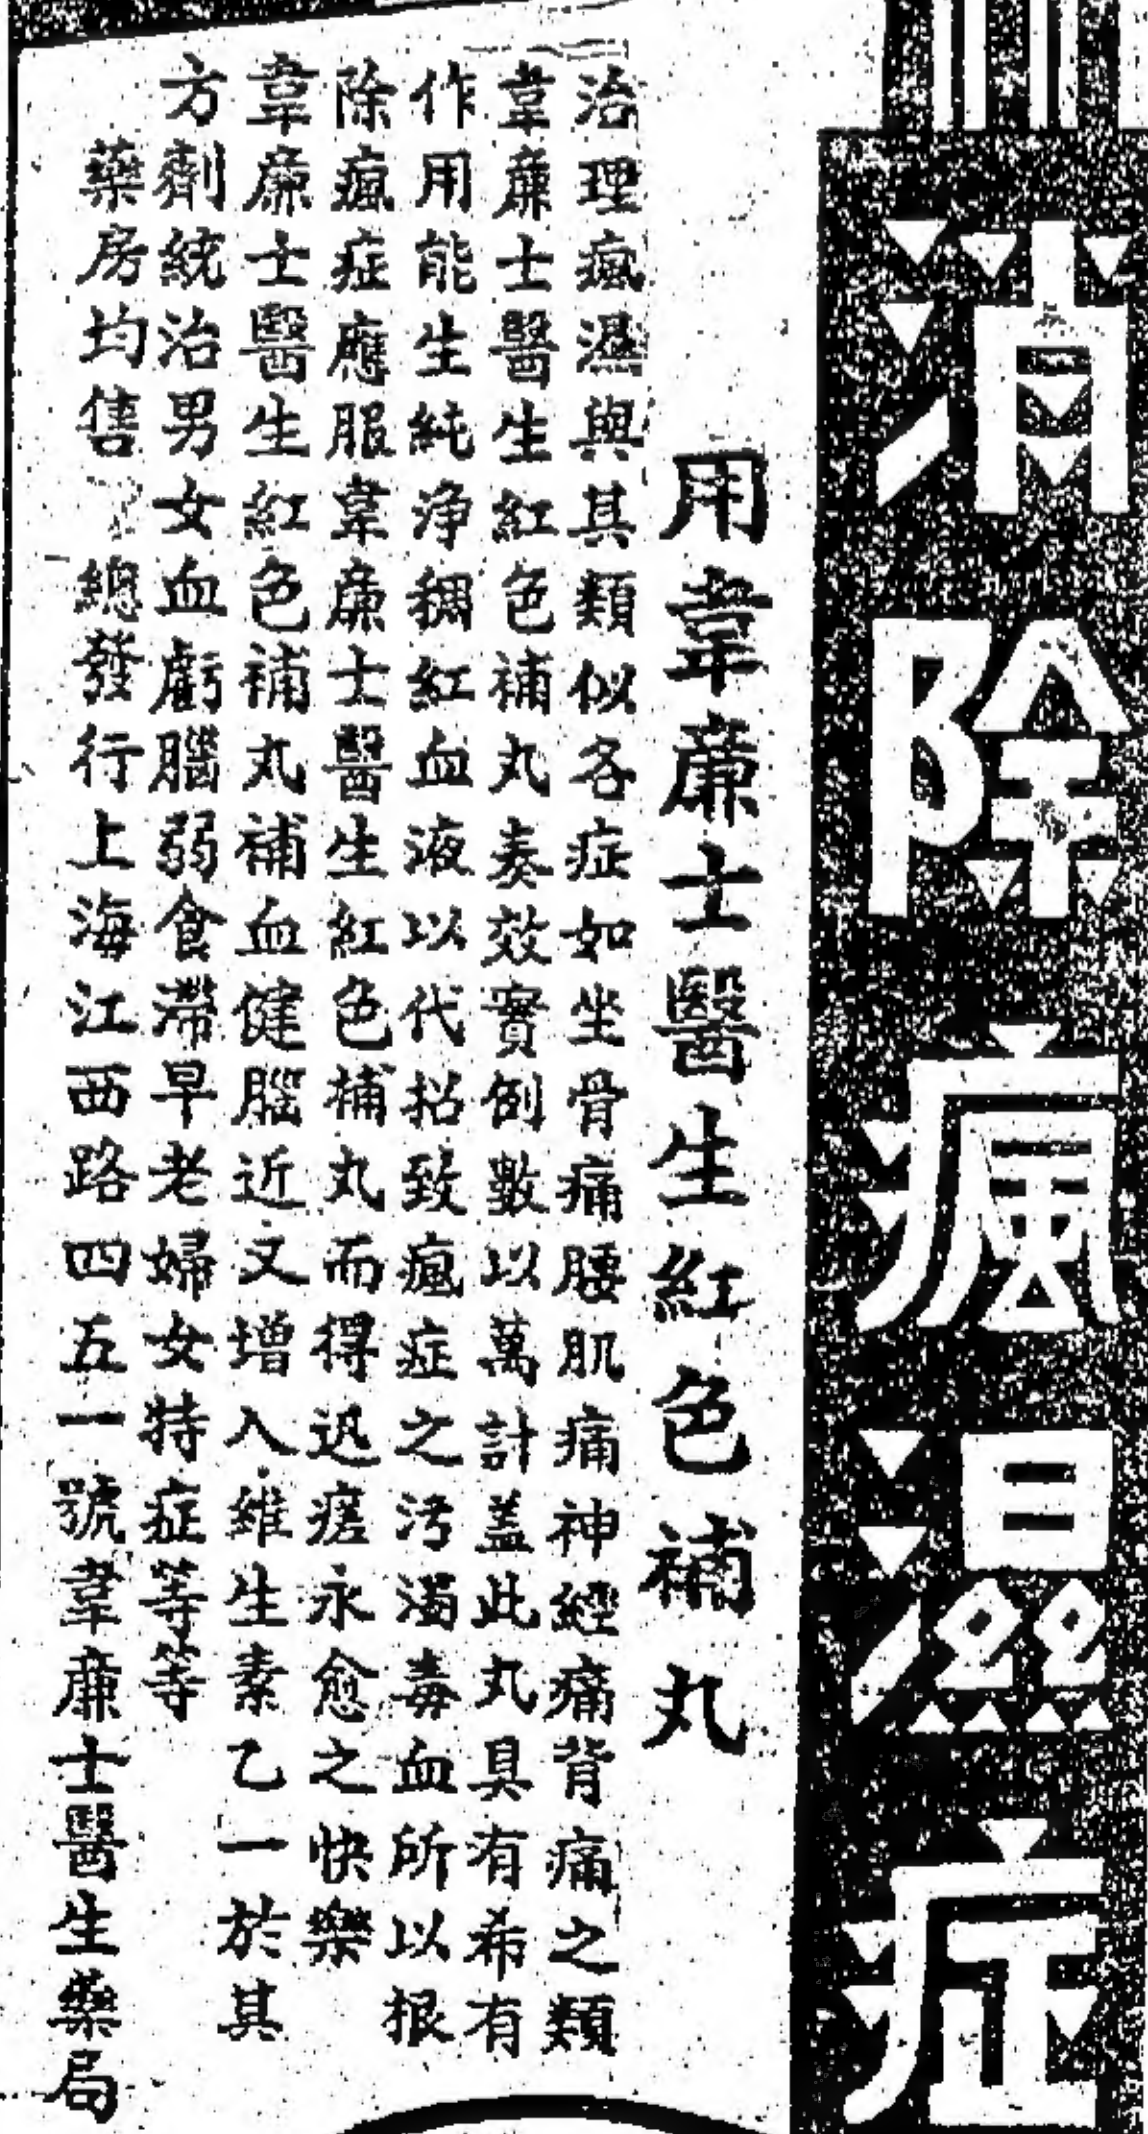 消除瘋濕症
用韋廉士醫生紅色補丸
治理瘋濕與其類似各症如坐骨痛腰肌痛神經痛背痛之類
韋廉士醫生紅色補丸奏效實例數以萬計蓋此丸具有希有
作用能生純净稠紅血液以代招致瘋症之汚濁毒血所以根
除瘋症應服韋廉士醫生紅色補丸而得迅瘥永愈之快樂
韋廉士醫生紅色補丸補血健腦近又增入維生素乙一於其
方劑統治男女血虧腦弱食滯早老婦女特症等等
藥房均售 總發行上海江西路四五一號韋廉士醫生藥局